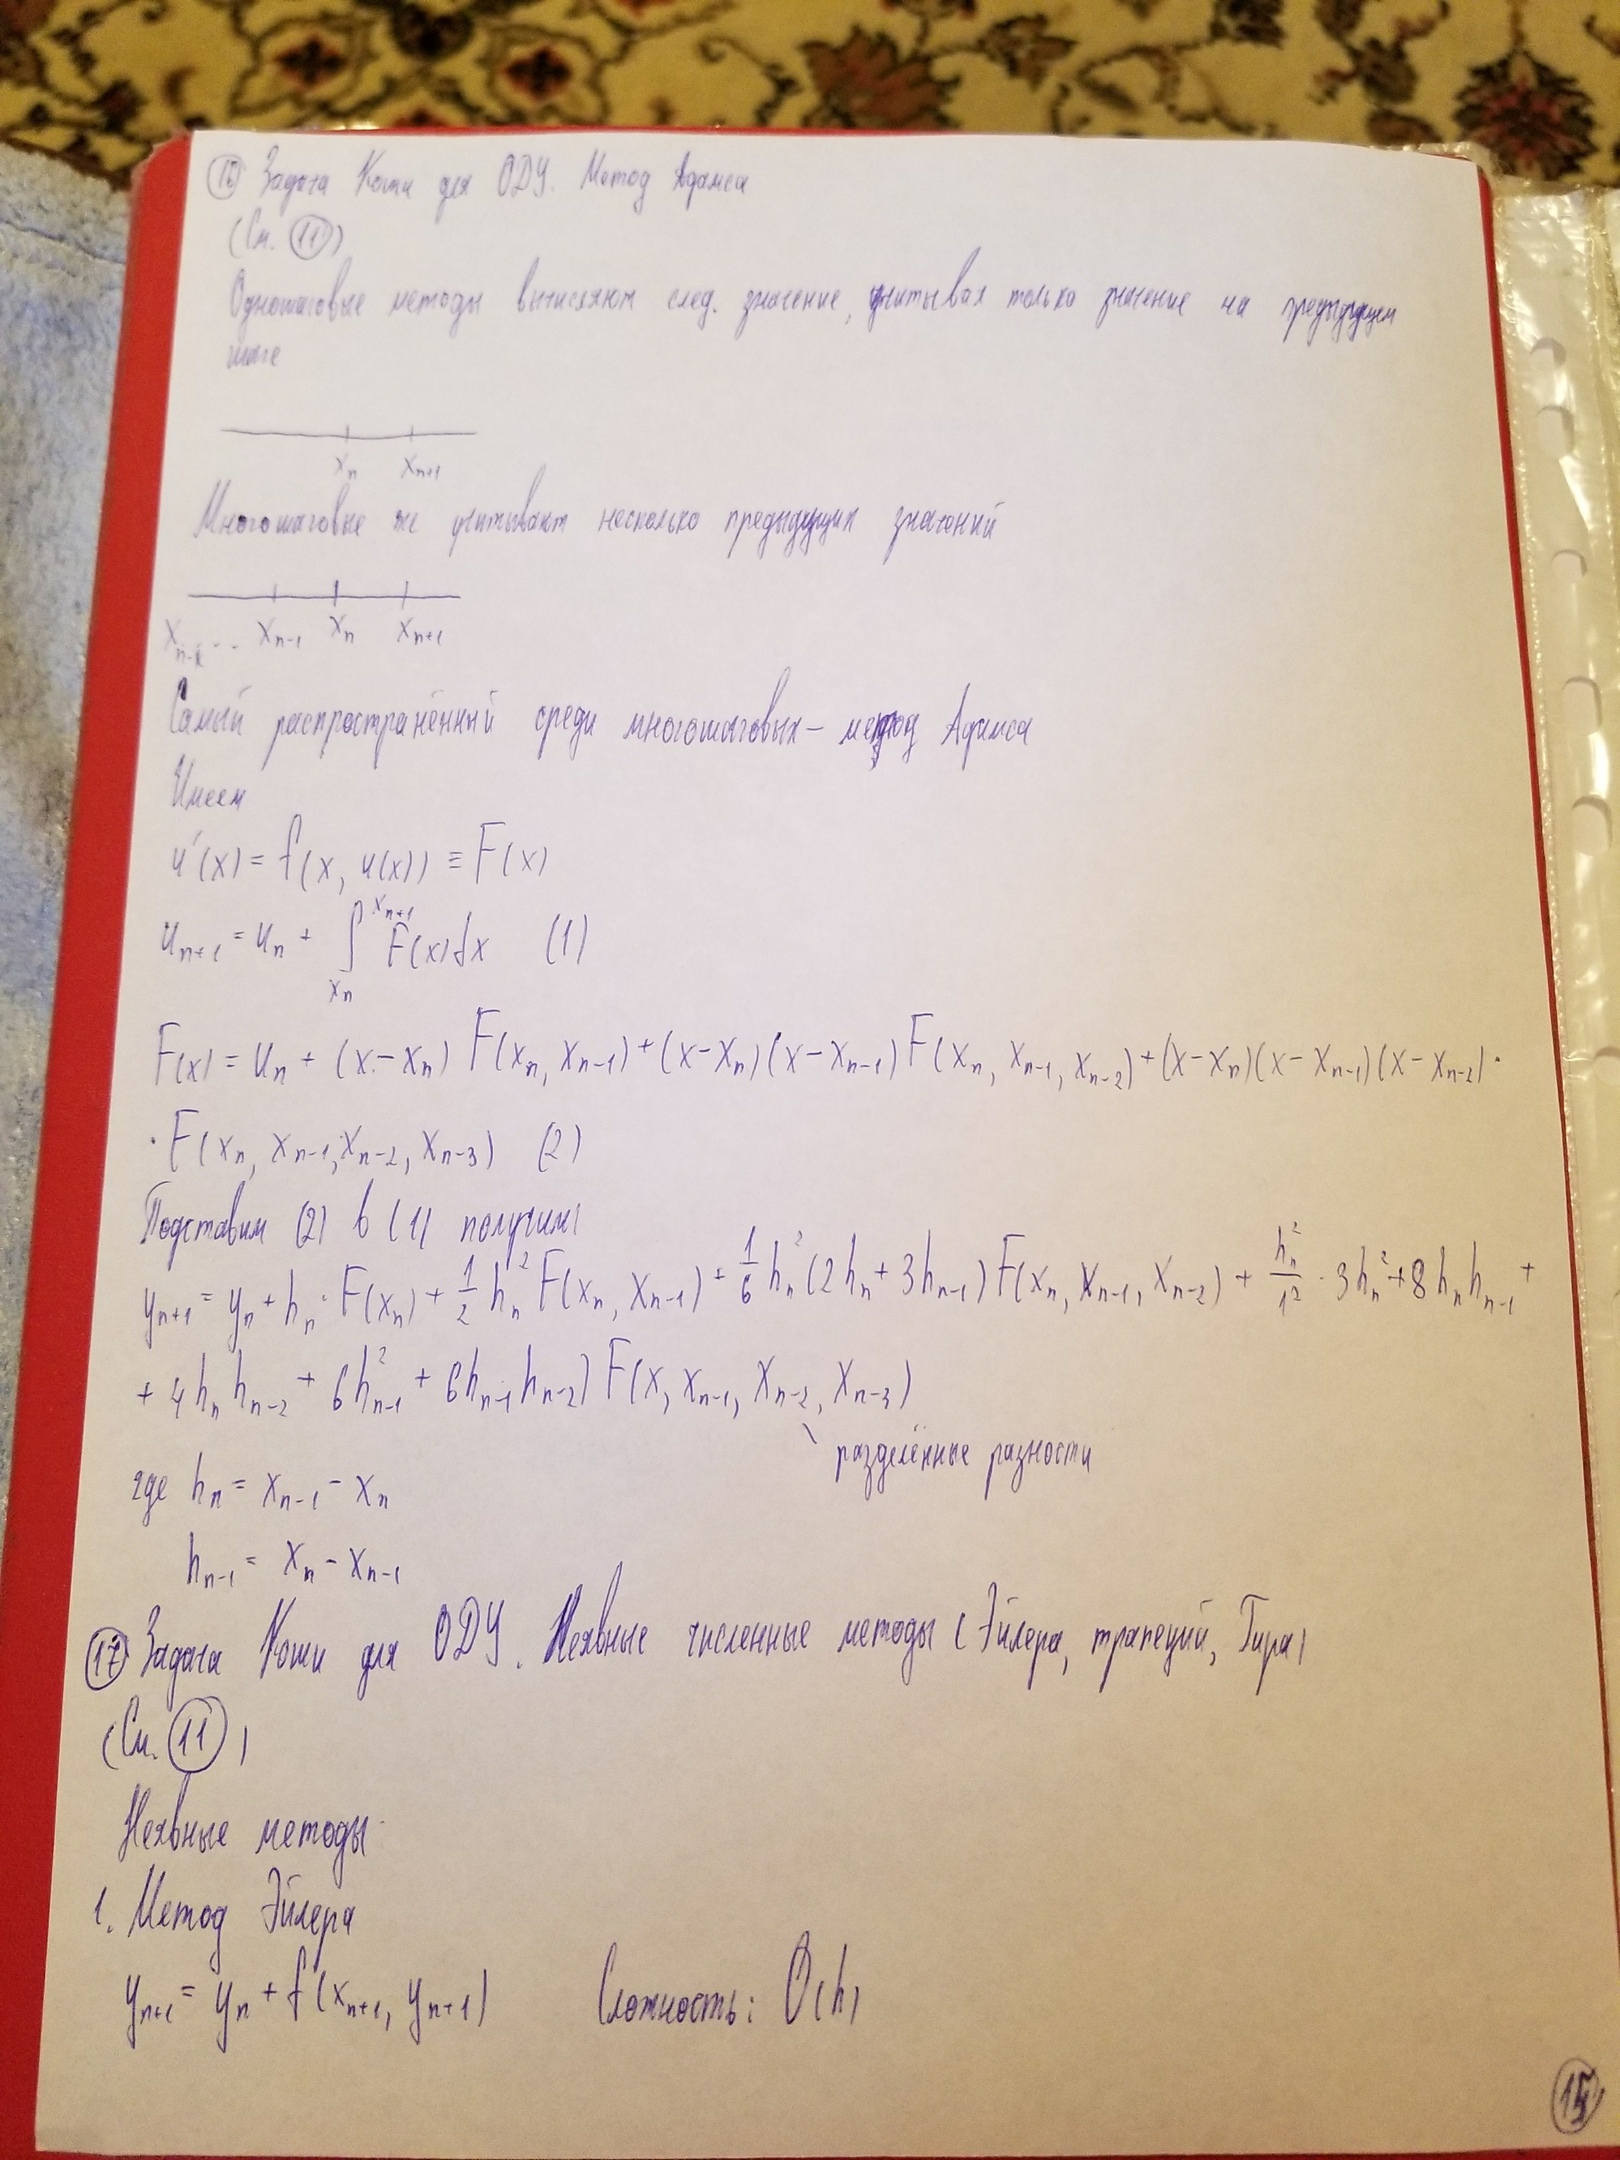 (16) Задача Коши для ОДУ. Метод Адамса
(См. (11))
Одношаговые методы вычисляют след. значение, учитывая только значение на предыдущем
шаге
x_n x_{n+1}
Многошаговые же учитывают несколько предыдущих значений
x_{n-k} ... x_{n-1} x_n x_{n+1}
Самый распространённый среди многошаговых – метод Адамса
Имеем
u'(x) = f(x, u(x)) ≡ F(x)
u_{n+1} = u_n + ∫_{x_n}^{x_{n+1}} F(x)dx (1)
F(x) = u_n + (x-x_n) F(x_n, x_{n-1}) + (x-x_n)(x-x_{n-1}) F(x_n, x_{n-1}, x_{n-2}) + (x-x_n)(x-x_{n-1})(x-x_{n-2}) ·
· F(x_n, x_{n-1}, x_{n-2}, x_{n-3}) (2)
Подставим (2) в (1) получим
y_{n+1} = y_n + h_n · F(x_n) + 1/2 h_n^2 F(x_n, x_{n-1}) + 1/6 h_n^2 (2h_n + 3h_{n-1}) F(x_n, x_{n-1}, x_{n-2}) + h_n^2/12 · 3h_n^2 + 8h_n h_{n-1} +
+ 4h_n h_{n-2} + 6h_{n-1}^2 + 6h_{n-1} h_{n-2}) F(x, x_{n-1}, x_{n-2}, x_{n-3})
разделённые разности
где h_n = x_{n-1} - x_n
h_{n-1} = x_n - x_{n-1}
(17) Задача Коши для ОДУ. Неявные численные методы (Эйлера, трапеций, Гира)
(См. (11))
Неявные методы
1. Метод Эйлера
y_{n+1} = y_n + f(x_{n+1}, y_{n+1}) Сложность: O(h)